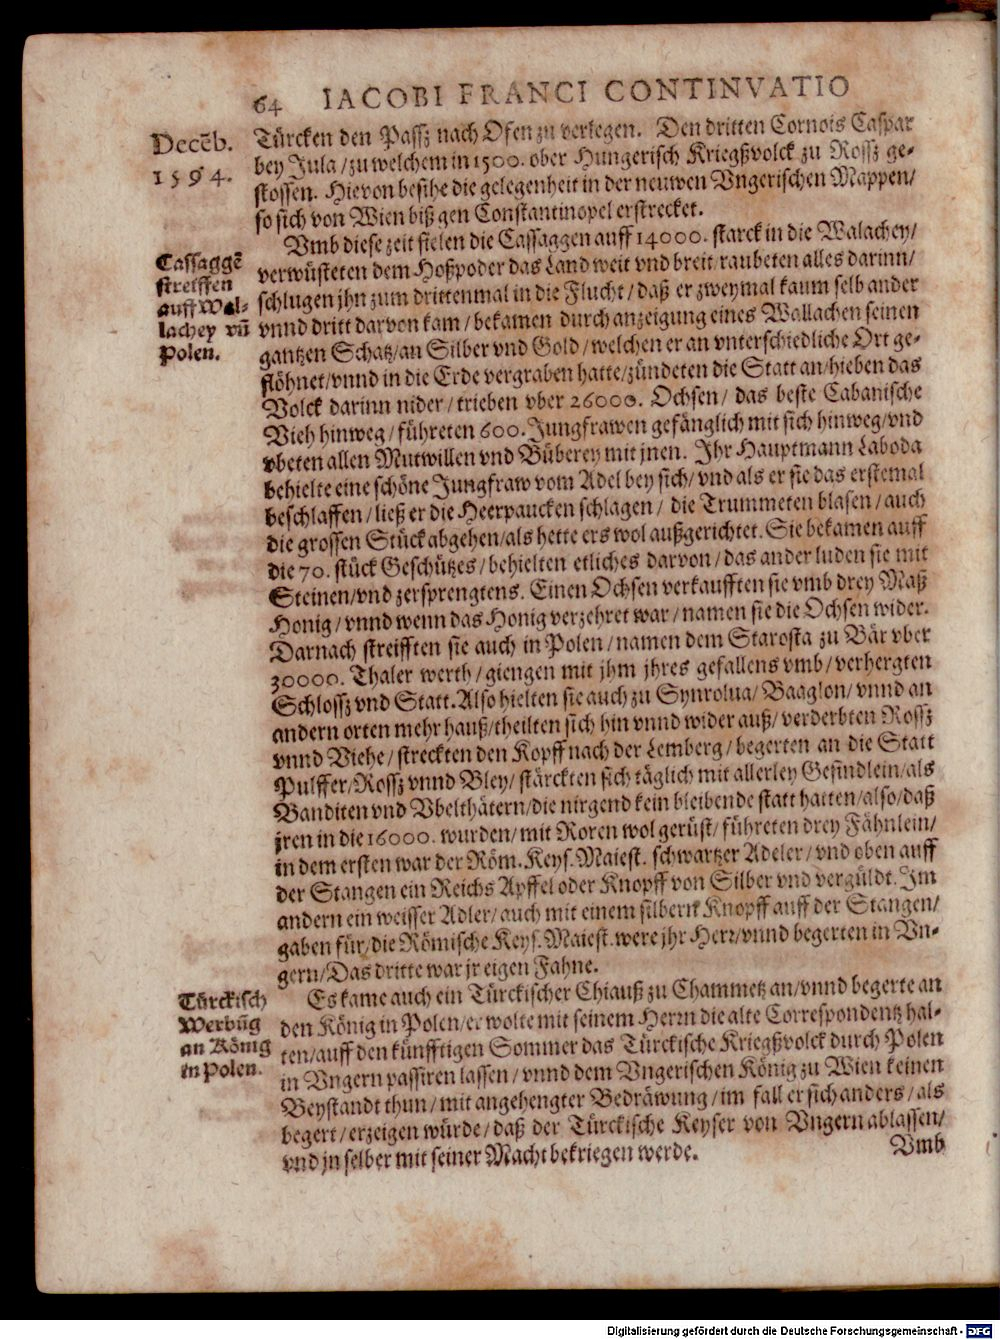 64 IACOBI FRANCI CONTINVATIO
Decēb.
1594.
Türcken den Passz nach Ofen zu verlegen. Den dritten Cornois Caspar
bey Jula / zu welchem in 1500. ober Hungerisch Kriegßvolck zu Rossz ge-
stossen. Hievon besihe die gelegenheit in der neuwen Vngerischen Mappen/
so sich von Wien biß gen Constantinopel erstrecket.
Cassaggē
streiffen
auff Wal-
lachey vñ
Polen.
Vmb diese zeit fielen die Cassaggen auff 14000. starck in die Walachey/
verwüsteten dem Hoßpoder das Land weit vnd breit / raubeten alles darinn/
schlugen jhn zum drittenmal in die Flucht / daß er zweymal kaum selb ander
vnnd dritt darvon kam / bekamen durch anzeigung eines Wallachen seinen
gantzen Schatz/an Silber vnd Gold / welchen er an vnterschiedliche Ort ge-
flöhnet/vnnd in die Erde vergraben hatte/zündeten die Statt an/hieben das
Volck darinn nider / trieben vber 26000. Ochsen / das beste Cabanische
Vieh hinweg / führeten 600. Jungfrawen gefänglich mit sich hinweg/vnd
vbeten allen Mutwillen vnd Büberey mit jnen. Ihr Hauptmann Laboda
behielte eine schöne Jungfraw vom Adel bey sich/vnd als er sie das erstemal
beschlaffen / ließ er die Heerpaucken schlagen / die Trummeten blasen / auch
die grossen Stück abgehen/als hette ers wol außgerichtet. Sie bekamen auff
die 70. stück Geschützes / behielten etliches darvon / das ander luden sie mit
Steinen/vnd zersprengtens. Einen Ochsen verkaufften sie vmb drey Maß
Honig / vnnd wenn das Honig verzehret war / namen sie die Ochsen wider.
Darnach streifften sie auch in Polen / namen dem Starosta zu Bär vber
30000. Thaler werth / giengen mit jhm jhres gefallens vmb / verhergten
Schlossz vnd Statt. Also hielten sie auch zu Synrolua/ Baaglon/ vnnd an
andern orten mehr hauß/theilten sich hin vnnd wider auß/ verderbten Rossz
vnnd Viehe / streckten den Kopff nach der Lemberg / begerten an die Statt
Pulffer/Rossz vnnd Bley/ stärckten sich täglich mit allerley Gesindlein/als
Banditen vnd Vbelthätern/die nirgend kein bleibende statt hatten/also/daß
jren in die 16000. wurden/ mit Roren wol gerüst/ führeten drey Fähnlein/
in dem ersten war der Röm. Keys. Maiest. schwartzer Adeler / vnd oben auff
der Stangen ein Reichs Apffel oder Knopff von Silber vnd vergüldt. Im
andern ein weisser Adler / auch mit einem silbern Knopff auff der Stangen/
gaben für/die Römische Keys. Maiest. were jhr Herr/vnnd begerten in Vn-
gern/Das dritte war jr eigen Fahne.
Türckisch
Werbūg
an König
in Polen.
Es kame auch ein Türckischer Chiauß zu Chammetz an/vnnd begerte an
den König in Polen/er wolte mit seinem Herrn die alte Correspondentz hal-
ten/auff den künfftigen Sommer das Türckische Kriegßvolck durch Polen
in Vngern passiren lassen / vnnd dem Vngerischen König zu Wien keinen
Beystandt thun / mit angehengter Bedräwung / im fall er sich anders / als
begert / erzeigen würde / daß der Türckische Keyser von Vngern ablassen/
vnd jn selber mit seiner Macht bekriegen werde.
Vmb
Digitalisierung gefördert durch die Deutsche Forschungsgemeinschaft - DFG